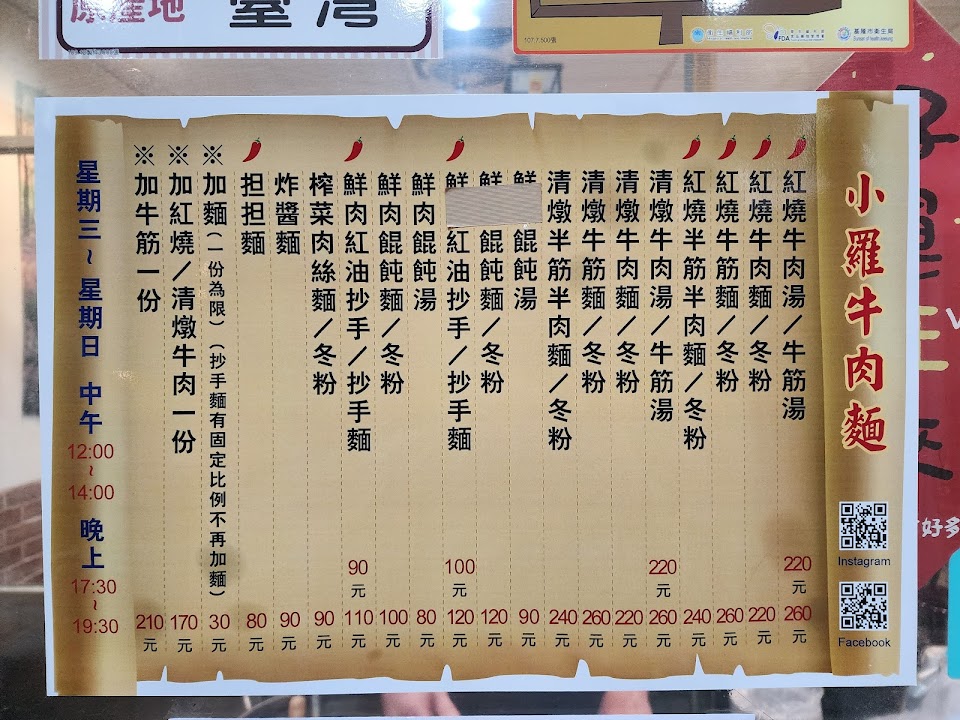 原產地
臺灣
107.7.500張
基隆市衛生局
小羅牛肉麵
Instagram
Facebook
紅燒牛肉湯/牛筋湯 220元 260元
紅燒牛肉麵/冬粉 220元
紅燒牛筋麵/冬粉 260元
紅燒半筋半肉麵/冬粉 240元
清燉牛肉湯/牛筋湯 220元 260元
清燉牛肉麵/冬粉 220元
清燉牛筋麵/冬粉 260元
清燉半筋半肉麵/冬粉 240元
鮮 餛飩湯 90元
鮮 餛飩麵/冬粉 120元
鮮 紅油抄手/抄手麵 100元 120元
鮮肉餛飩湯 80元
鮮肉餛飩麵/冬粉 100元
鮮肉紅油抄手/抄手麵 90元 110元
榨菜肉絲麵/冬粉 90元
炸醬麵 90元
担担麵 80元
※加麵(一份為限)(抄手麵有固定比例不再加麵) 30元
※加紅燒/清燉牛肉一份 170元
※加牛筋一份 210元
星期三~星期日 中午 12:00~14:00 晚上 17:30~19:30